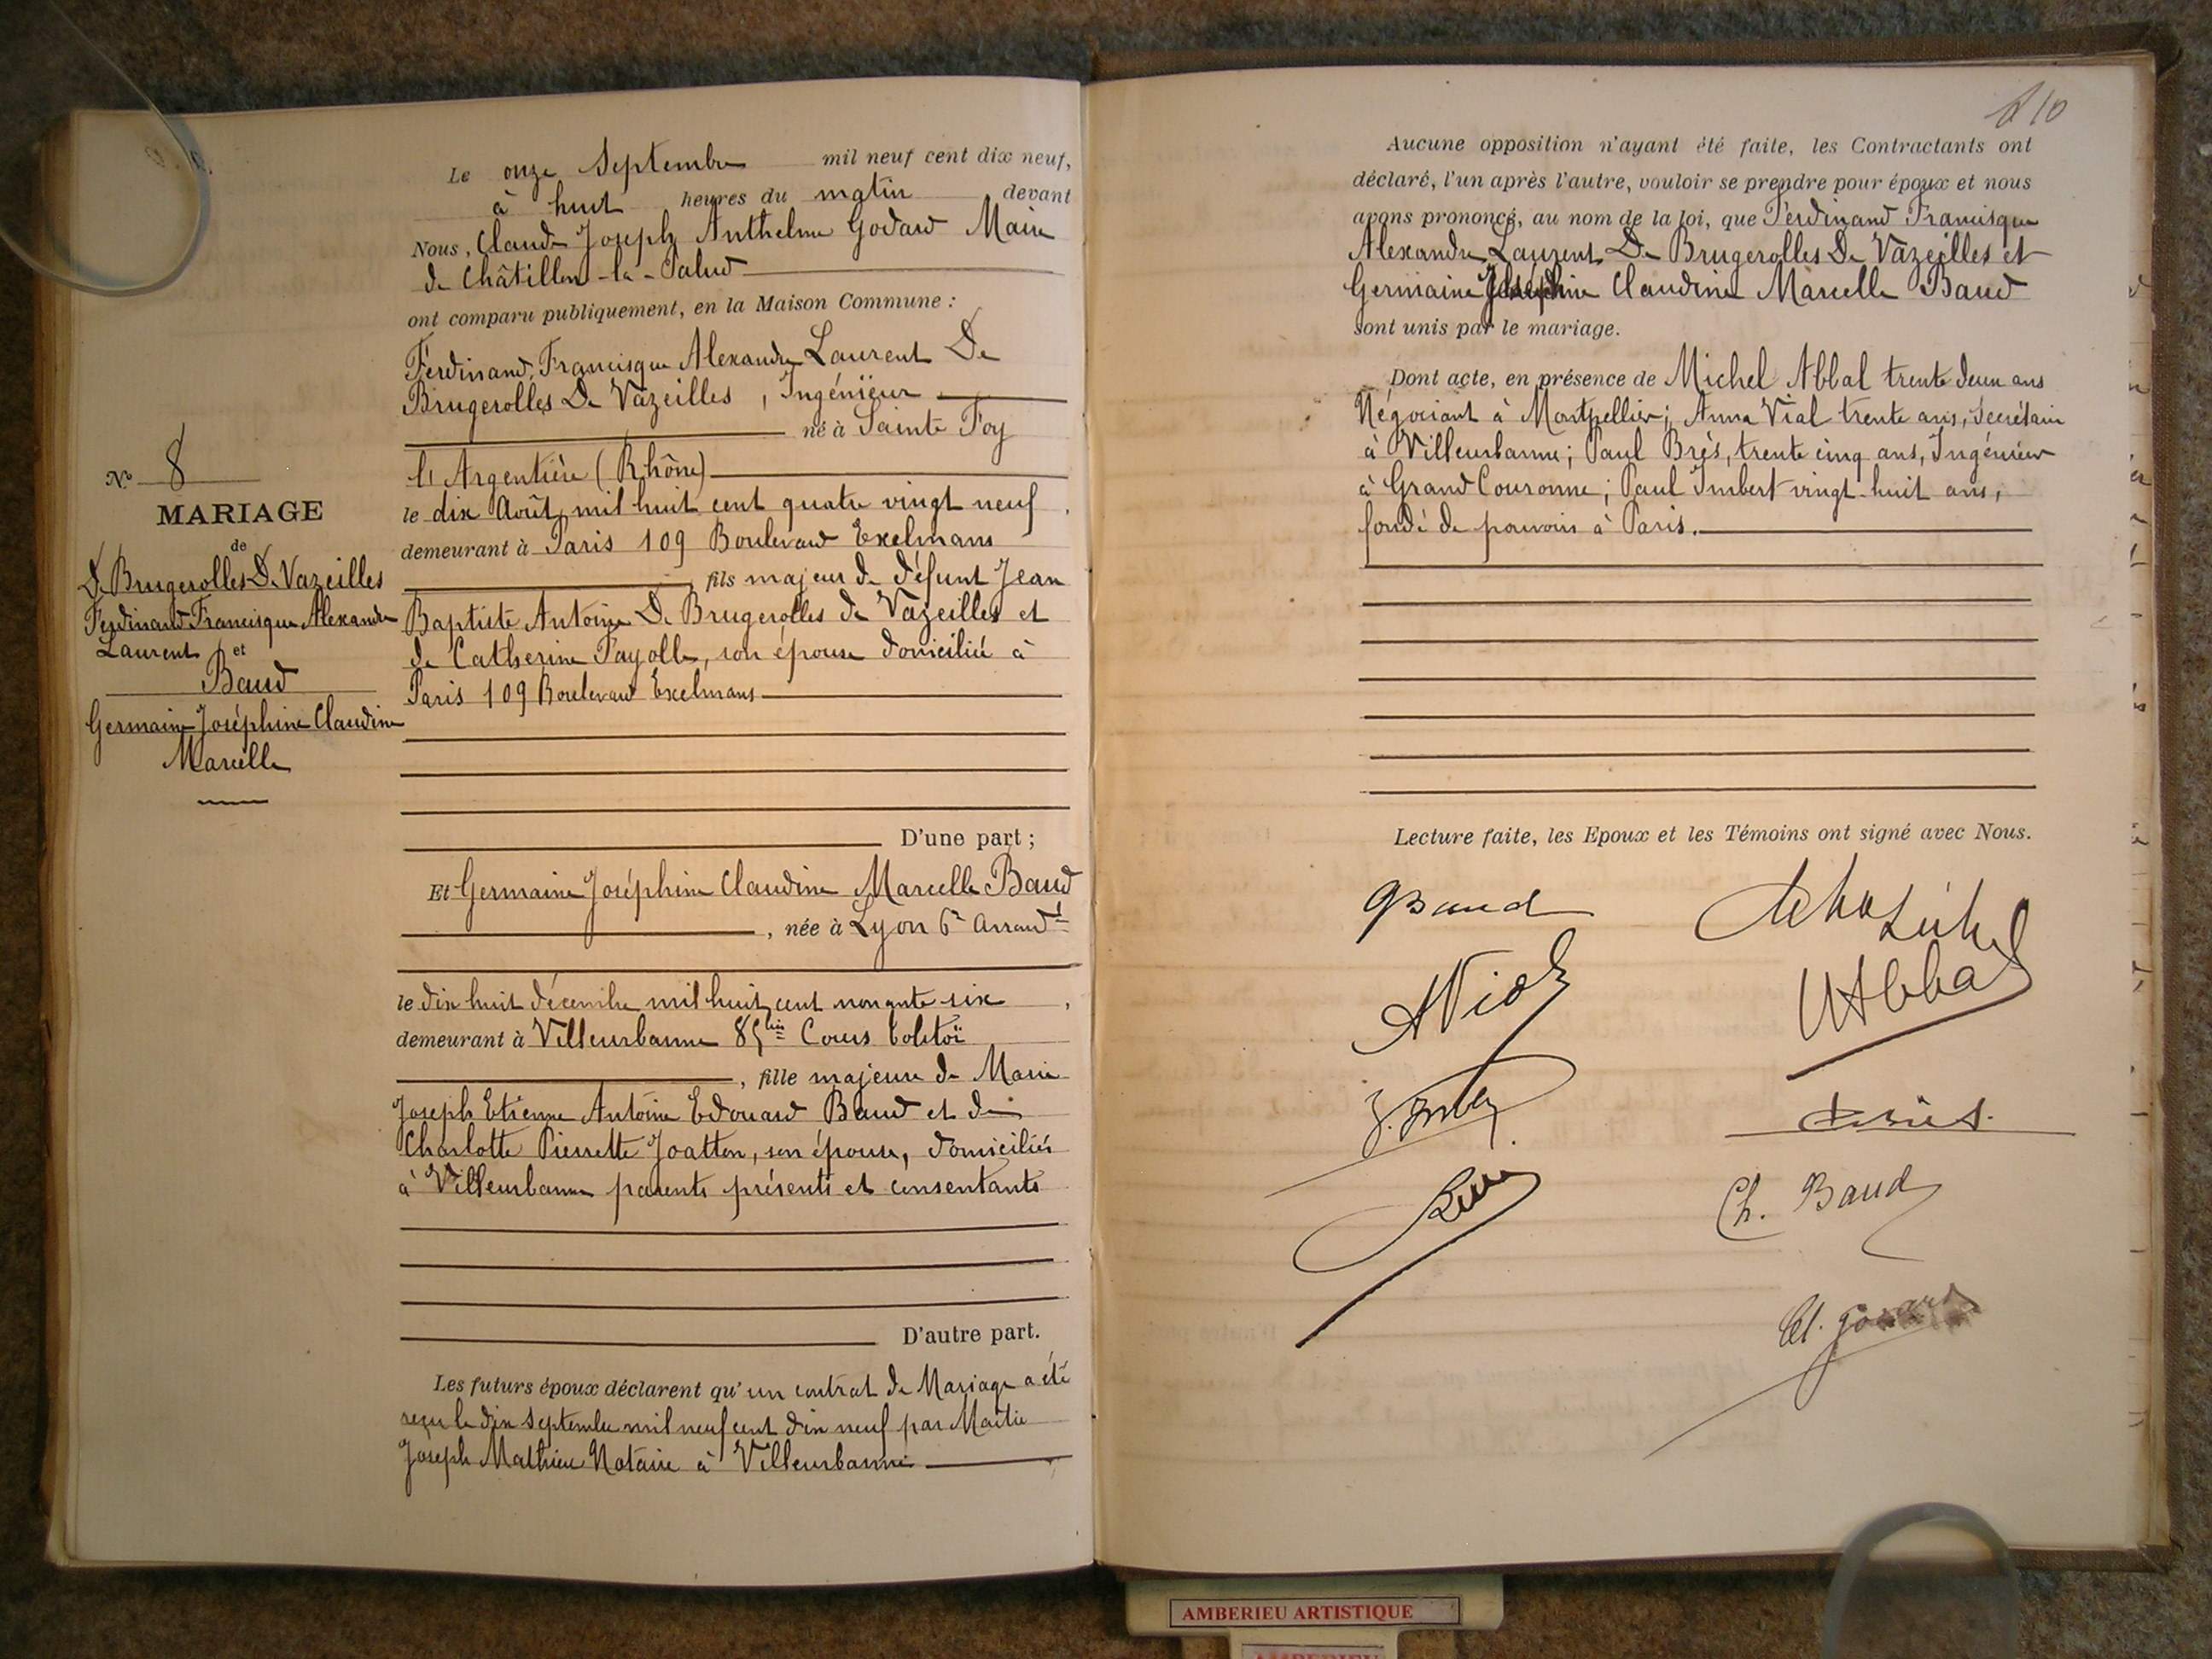 Le onze Septembre mil neuf cent dix neuf,
à huit heures du matin devant
Nous, Claude Joseph Anthelme Godard Maire
de Châtillon-la-Palud
ont comparu publiquement, en la Maison Commune :
Ferdinand Francisque Alexandre Laurent De
Brugerolles De Vazeilles, Ingénieur
né à Sainte Foy
l'Argentière (Rhône)
le dix Août mil huit cent quatre vingt neuf,
demeurant à Paris 109 Boulevard Exelmans
fils majeur de défunt Jean
Baptiste Antoine De Brugerolles de Vazeilles et
de Catherine Fayolle, son épouse domiciliée à
Paris 109 Boulevard Exelmans
N° 8
MARIAGE
de
De Brugerolles De Vazeilles
Ferdinand Francisque Alexandre
Laurent et
Baud
Germaine Joséphine Claudine
Marcelle
D'une part ;
Et Germaine Joséphine Claudine Marcelle Baud
, née à Lyon 6e Arrondt
le dix huit décembre mil huit cent nonante six,
demeurant à Villeurbanne 85bis Cours Tolstoï
, fille majeure de Marie
Joseph Etienne Antoine Edouard Baud et de
Charlotte Pierrette Joatton, son épouse, domiciliés
à Villeurbanne parents présents et consentants
D'autre part.
Les futurs époux déclarent qu'un contrat de Mariage a été
reçu le dix septembre mil neuf cent dix neuf par Maître
Joseph Mathieu Notaire à Villeurbanne
10
Aucune opposition n'ayant été faite, les Contractants ont
déclaré, l'un après l'autre, vouloir se prendre pour époux et nous
avons prononcé, au nom de la loi, que Ferdinand Francisque
Alexandre Laurent De Brugerolles De Vazeilles et
Germaine Joséphine Claudine Marcelle Baud
sont unis par le mariage.
Dont acte, en présence de Michel Abbal trente deux ans
Négociant à Montpellier; Anna Vial trente ans, Secrétaire
à Villeurbanne; Paul Brès, trente cinq ans, Ingénieur
à Grand Couronne; Paul Imbert vingt-huit ans,
fondé de pouvoirs à Paris.
Lecture faite, les Epoux et les Témoins ont signé avec Nous.
G Baud
A Vial
M Abbal
Brès.
Ch. Baud
Cl. Godard
AMBERIEU ARTISTIQUE
AMBERIEU